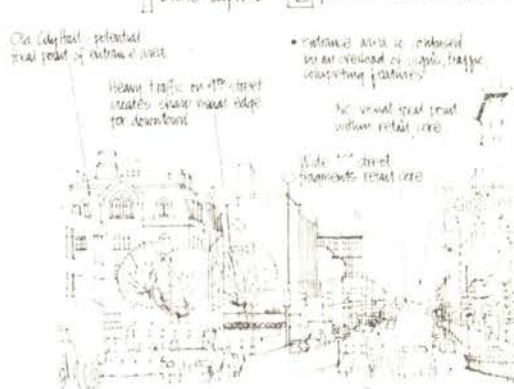 Old City Hall - potential
focal point of entrance area
Heavy traffic on street
creates sharp visual edge
for downtown
• Entrance area is confused
by an overload of signs, traffic,
competing features
No visual focal point
within retail core
Wide street
fragments retail core